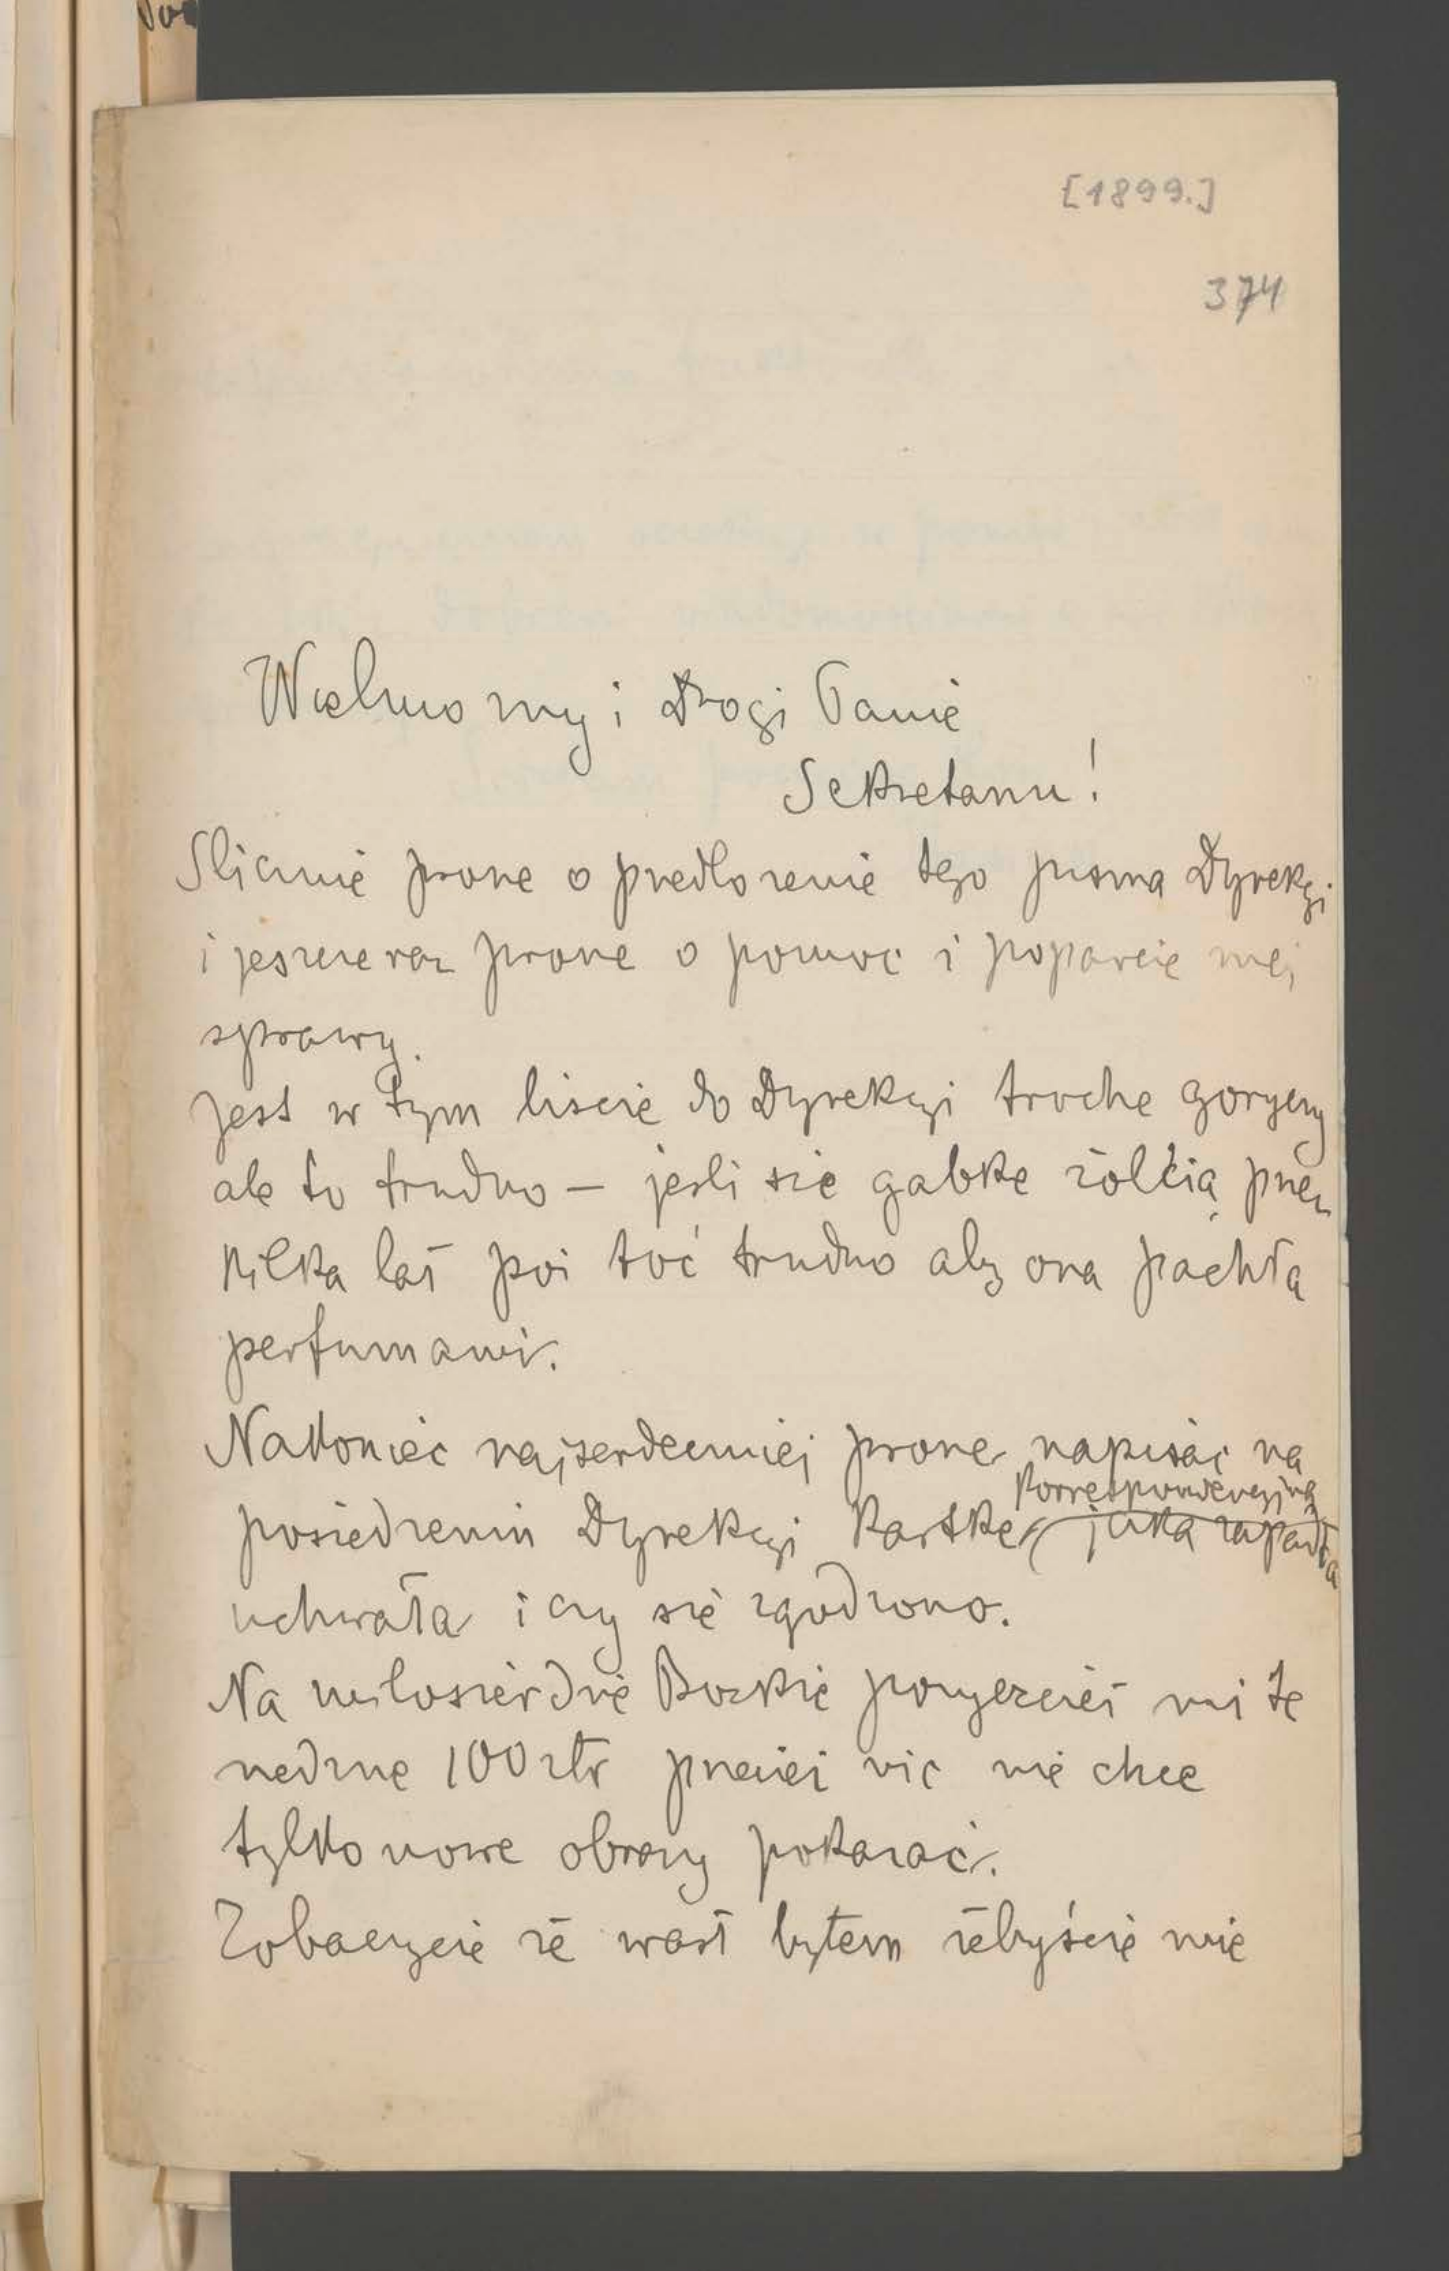 [1899.]
374
Wielmożny i Drogi Panie
Sekretarzu!
Slicznie prosze o predlozenie tego pisma Dyrekcji
i jeszcze raz prosze o pomoc i poparcie mej
sprawy.
Jest w tym liscie do Dyrekcyi troche goryczy
ale to trudno – jesli się gabke żólcią przez
kilka lat poi toć trudno aby ona pachła
perfumami.
Nakoniec najserdeczniej prosze napisać na
posiedzeniu Dyrekcyi kartke korrespondencyjną jaka zapadła
uchwała i czy się zgodzono.
Na milosierdzie Bozkie pożyczcież mi te
nedzne 100 złr przeciei nic nie chce
tylko nowe obrazy pokazać.
Zobaczycie że wart bylem żebyście mie